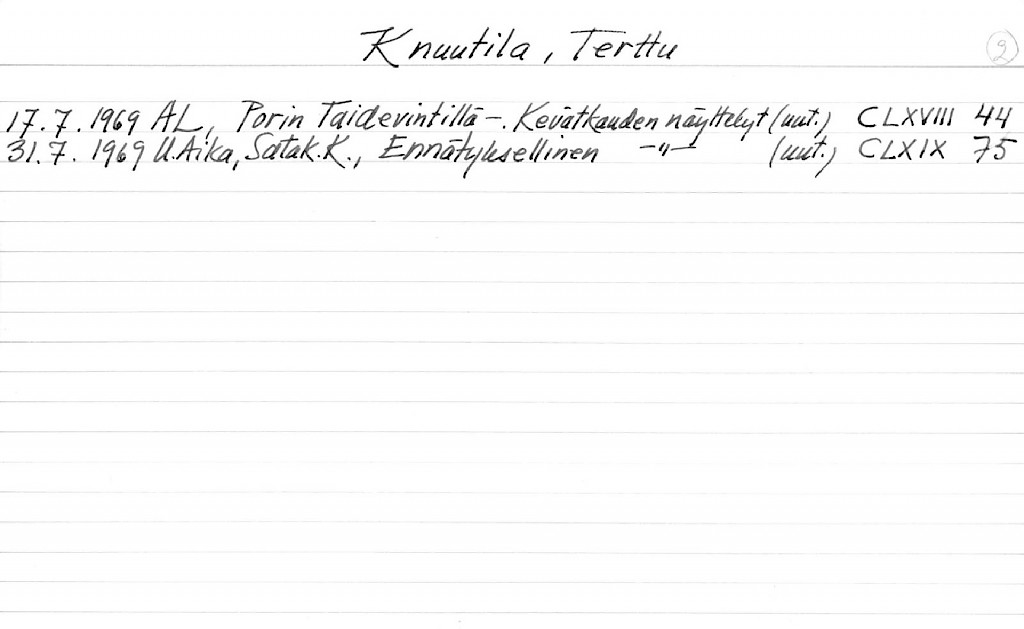 Knuutila, Terttu 2
17.7.1969 AL, Porin Taidevintillä –. Kevätkauden näyttelyt (uut.) CLXVIII 44
31.7.1969 U.Aika, Satak.K., Ennätyksellinen –"– (uut.) CLXIX 75